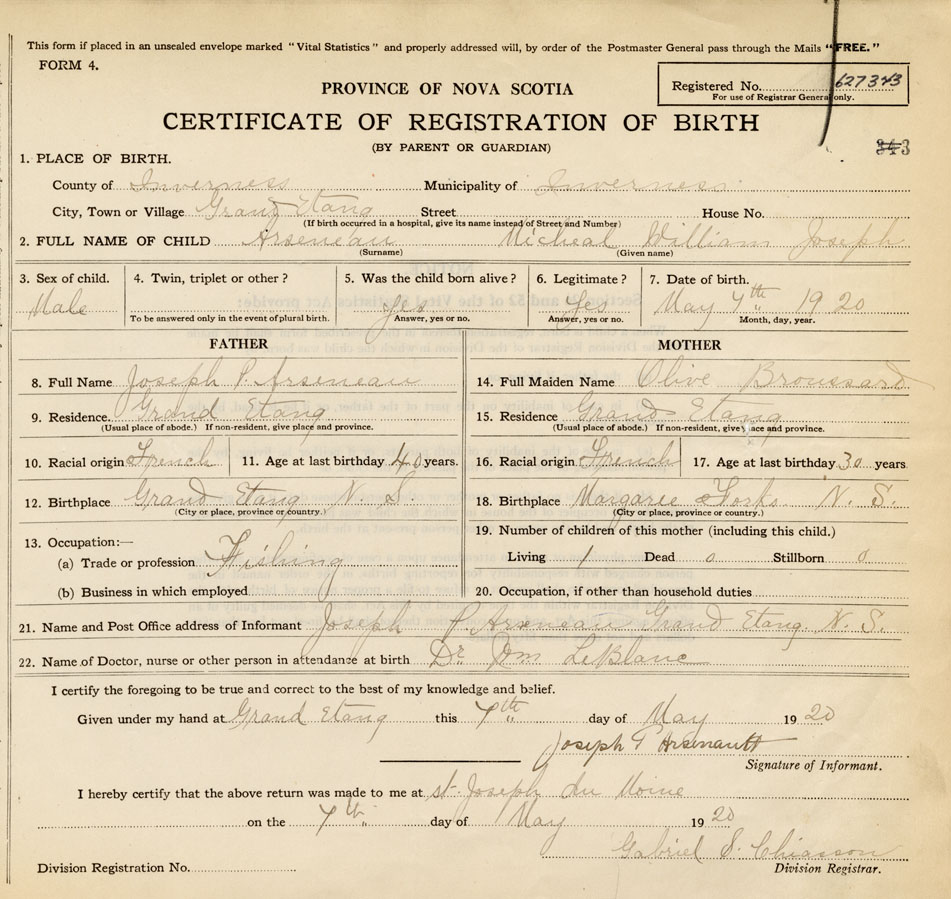 This form if placed in an unsealed envelope marked "Vital Statistics" and properly addressed will, by order of the Postmaster General pass through the Mails "FREE."
FORM 4.
Registered No. 627343
For use of Registrar General only.
PROVINCE OF NOVA SCOTIA
CERTIFICATE OF REGISTRATION OF BIRTH
(BY PARENT OR GUARDIAN)
343
1. PLACE OF BIRTH.
County of Inverness Municipality of Inverness
City, Town or Village Grand Etang Street House No.
(If birth occurred in a hospital, give its name instead of Street and Number)
2. FULL NAME OF CHILD Arseneau Micheal William Joseph
(Surname) (Given name)
3. Sex of child. 4. Twin, triplet or other? 5. Was the child born alive? 6. Legitimate? 7. Date of birth.
Male Yes Yes May 7th 1920
To be answered only in the event of plural birth. Answer, yes or no. Answer, yes or no. Month, day, year.
FATHER MOTHER
8. Full Name Joseph P. Arseneau 14. Full Maiden Name Olive Broussard
9. Residence. Grand Etang 15. Residence Grand Etang
(Usual place of abode.) If non-resident, give place and province. (Usual place of abode.) If non-resident, give place and province.
10. Racial origin French 11. Age at last birthday 40 years. 16. Racial origin French 17. Age at last birthday 30 years
12. Birthplace Grand Etang N. S. 18. Birthplace Margaree Forks N. S.
(City or place, province or country.) (City or place, province or country.)
13. Occupation:— 19. Number of children of this mother (including this child.)
(a) Trade or profession Fishing Living 1 Dead 0 Stillborn 0
(b) Business in which employed 20. Occupation, if other than household duties
21. Name and Post Office address of Informant Joseph P. Arseneau Grand Etang N. S.
22. Name of Doctor, nurse or other person in attendance at birth Dr. Wm LeBlanc
I certify the foregoing to be true and correct to the best of my knowledge and belief.
Given under my hand at Grand Etang this 7th day of May 1920
Joseph P Arsenault
Signature of Informant.
I hereby certify that the above return was made to me at st. Joseph du Moine
on the 7th day of May 1920
Gabriel S. Chiasson
Division Registration No. Division Registrar.